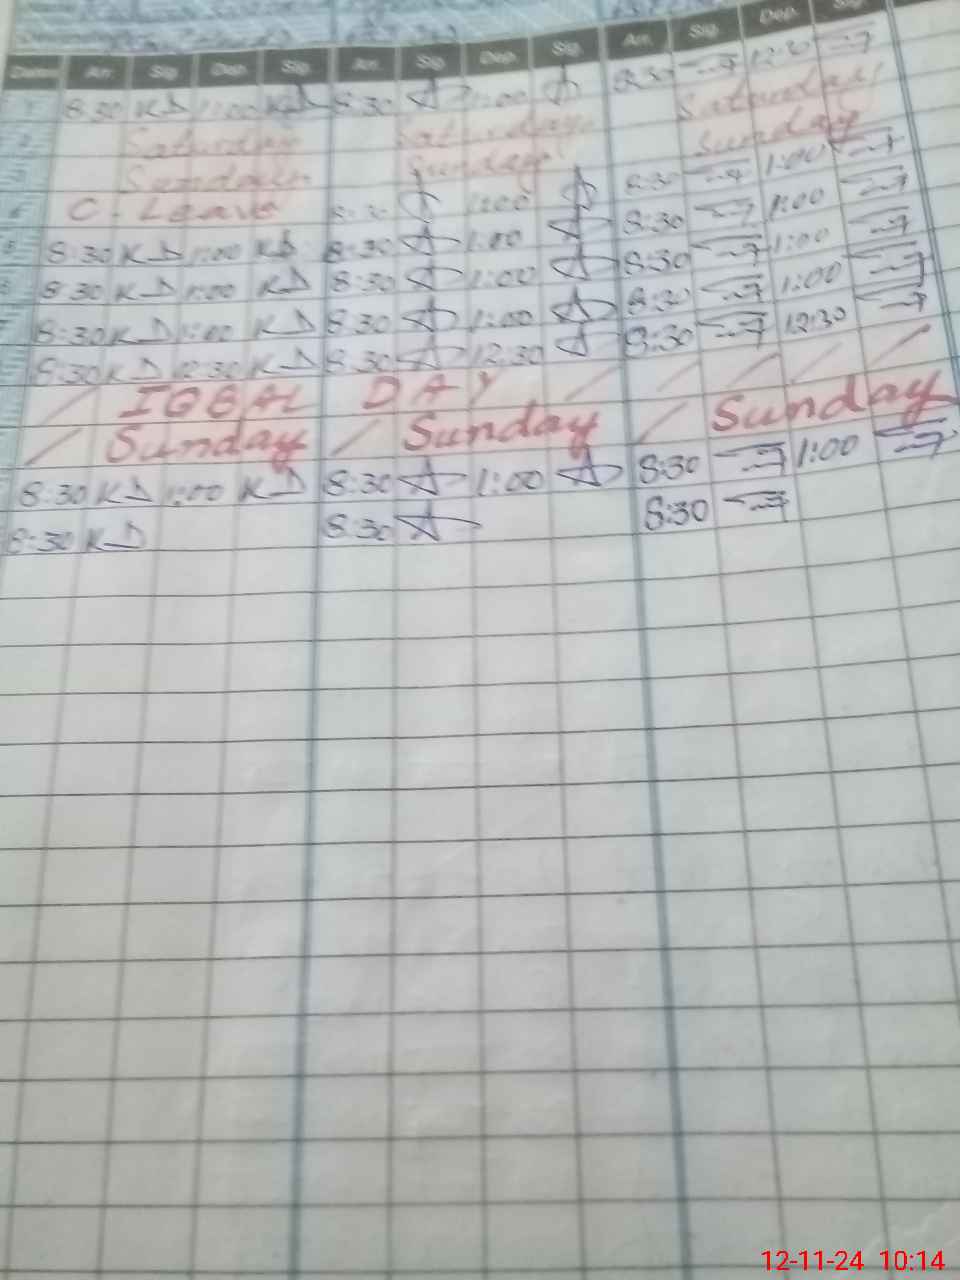 Dates Arr. Sig. Dep. Sig. Arr. Sig. Dep. Sig. Arr. Sig. Dep. Sig.
1 8:30 KD 1:00 KD 8:30 1:00 8:30 12:30
2 Saturday Saturday Saturday
3 Sunday Sunday Sunday
4 C-Leave 8:30 1:00 8:30 1:00
5 8:30 KD 1:00 KD 8:30 1:00 8:30 1:00
6 8:30 KD 1:00 KD 8:30 1:00 8:30 1:00
7 8:30 KD 1:00 KD 8:30 1:00 8:30 1:00
8:30 KD 12:30 KD 8:30 12:30 8:30 12:30
IQBAL DAY
Sunday Sunday Sunday
8:30 KD 1:00 KD 8:30 1:00 8:30 1:00
8:30 KD 8:30 8:30
12-11-24 10:14